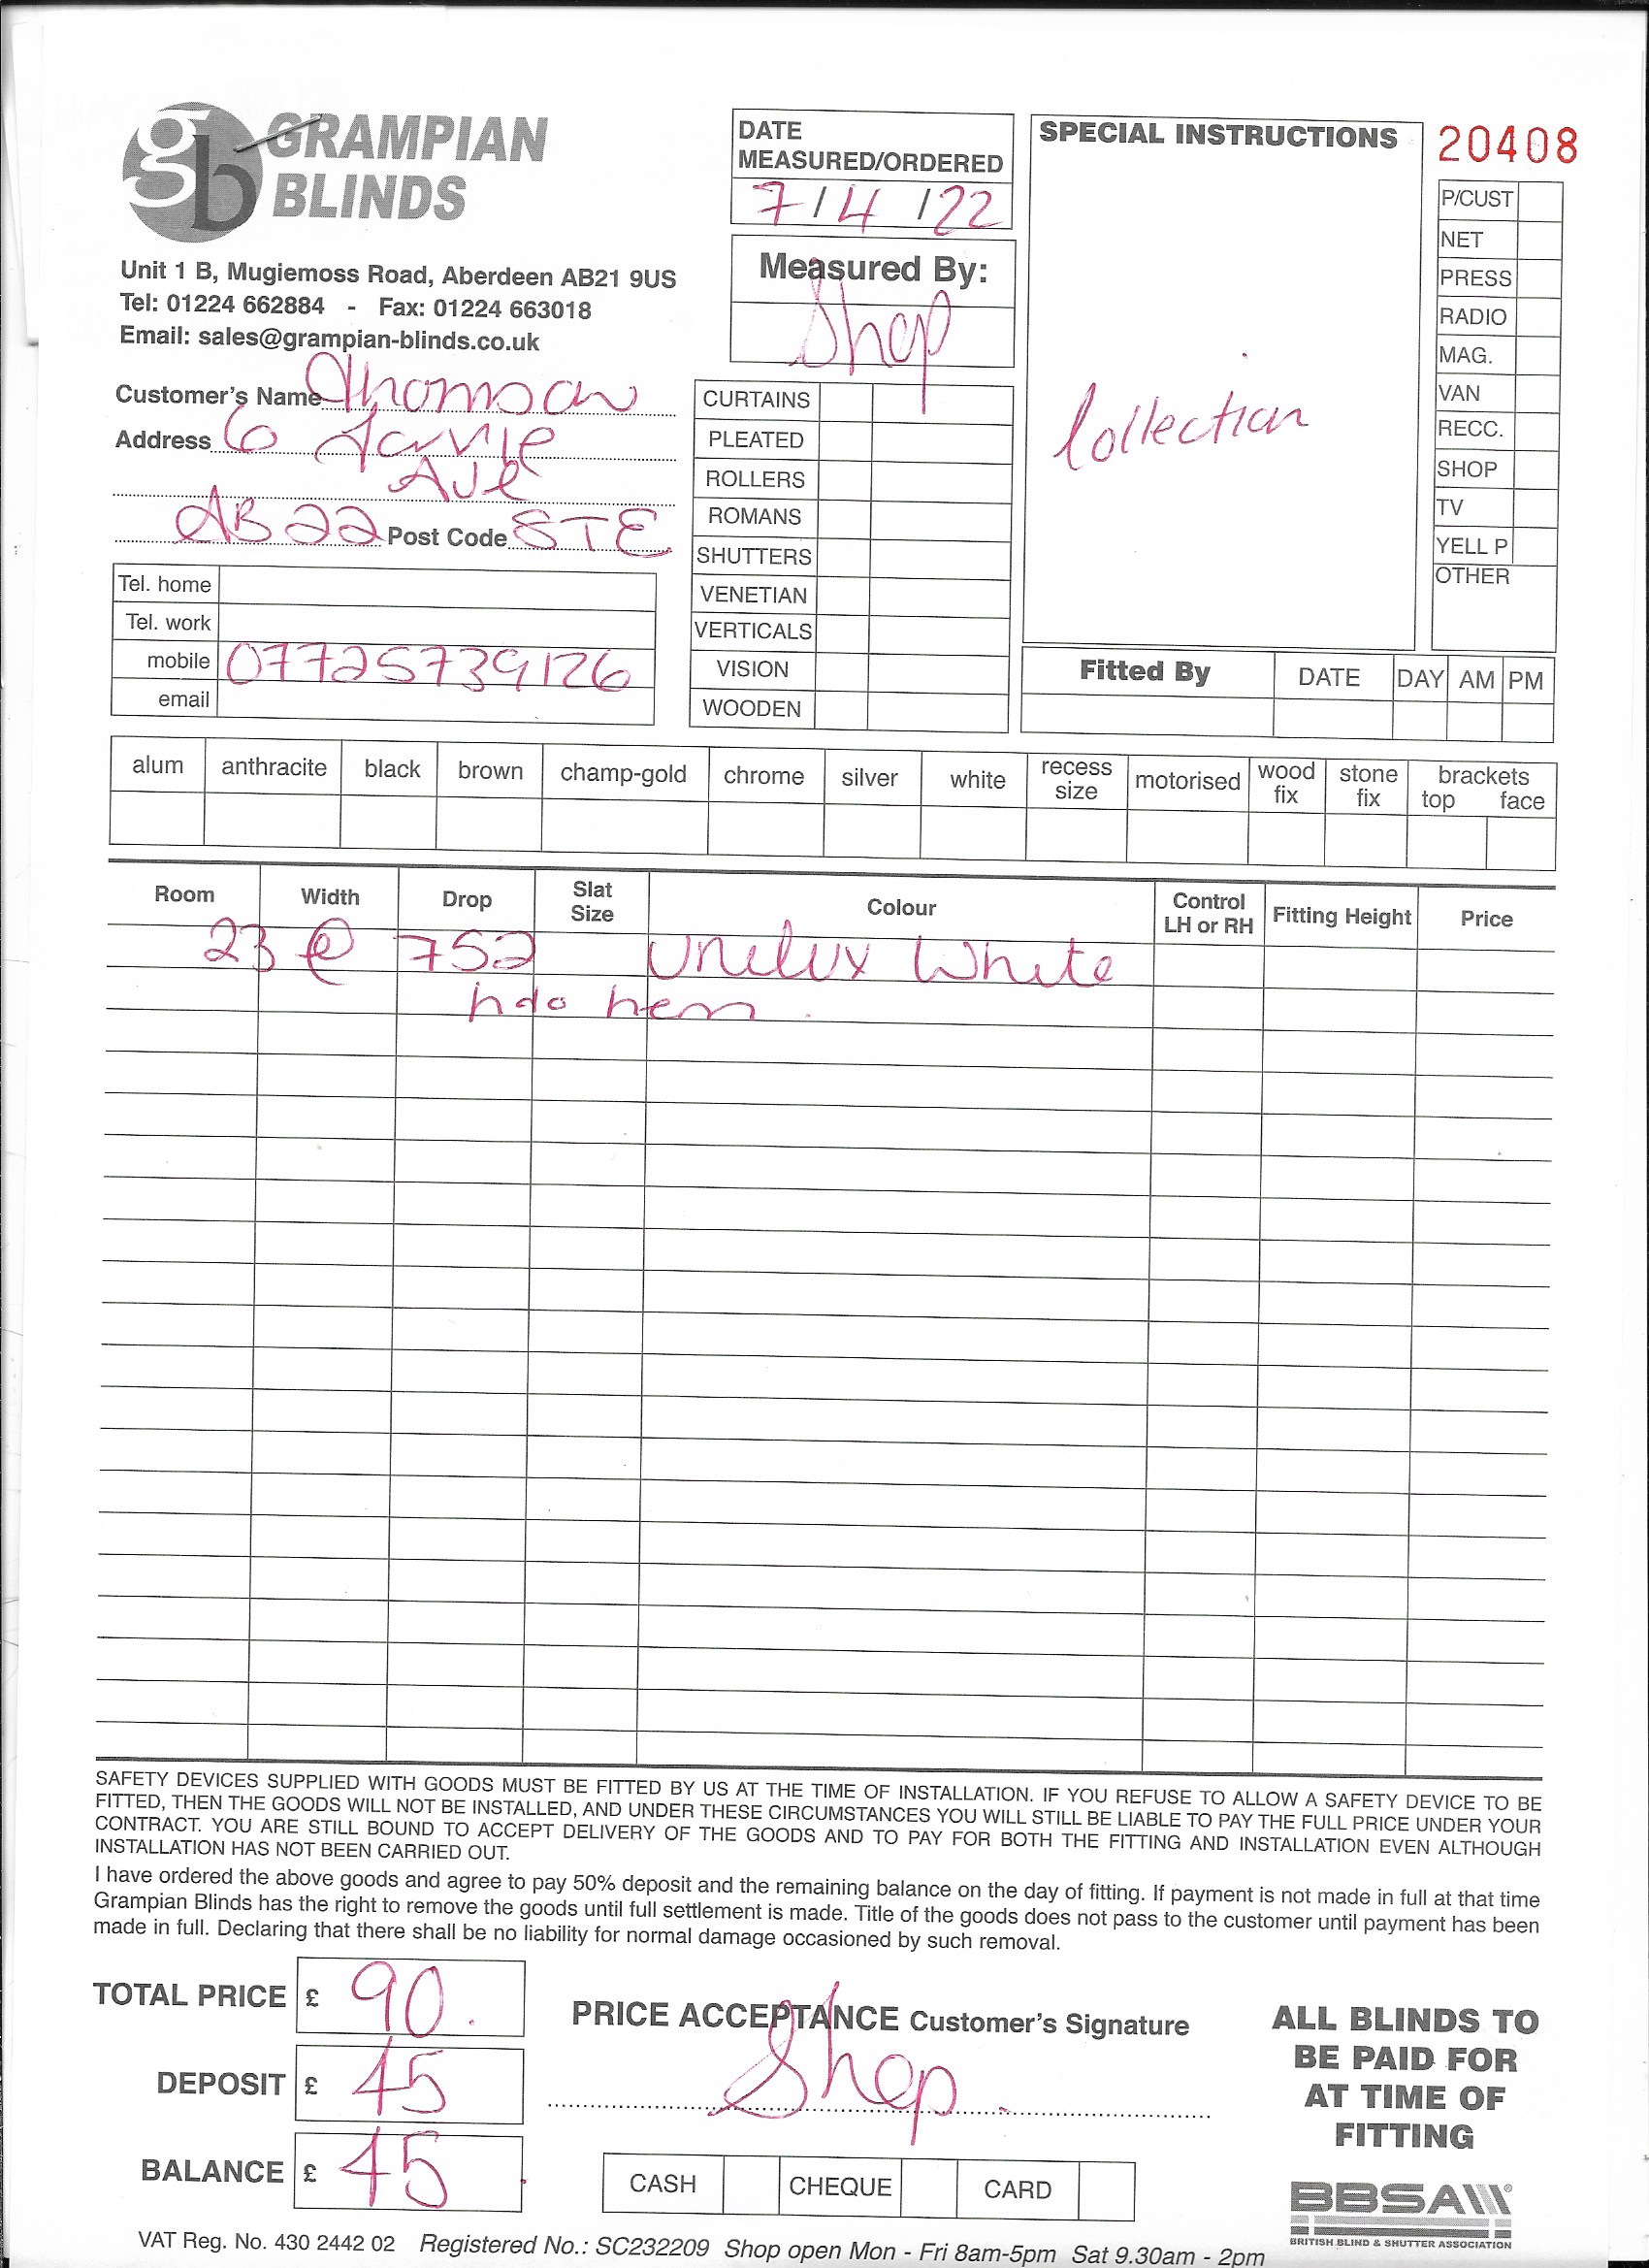 gb GRAMPIAN
BLINDS
Unit 1 B, Mugiemoss Road, Aberdeen AB21 9US
Tel: 01224 662884 - Fax: 01224 663018
Email: sales@grampian-blinds.co.uk
Customer's Name Thomson
Address 6 Jarvie
Ave
AB22 Post Code 8TE
Tel. home
Tel. work
mobile 07725739126
email
DATE
MEASURED/ORDERED
7/4/22
Measured By:
Shop
CURTAINS
PLEATED
ROLLERS
ROMANS
SHUTTERS
VENETIAN
VERTICALS
VISION
WOODEN
SPECIAL INSTRUCTIONS
Collection
20408
P/CUST
NET
PRESS
RADIO
MAG.
VAN
RECC.
SHOP
TV
YELL P
OTHER
Fitted By DATE DAY AM PM
alum anthracite black brown champ-gold chrome silver white recess size motorised wood fix stone fix brackets top face
Room Width Drop Slat Size Colour Control LH or RH Fitting Height Price
23 @ 752 Unilux White
hdo hem
SAFETY DEVICES SUPPLIED WITH GOODS MUST BE FITTED BY US AT THE TIME OF INSTALLATION. IF YOU REFUSE TO ALLOW A SAFETY DEVICE TO BE
FITTED, THEN THE GOODS WILL NOT BE INSTALLED, AND UNDER THESE CIRCUMSTANCES YOU WILL STILL BE LIABLE TO PAY THE FULL PRICE UNDER YOUR
CONTRACT. YOU ARE STILL BOUND TO ACCEPT DELIVERY OF THE GOODS AND TO PAY FOR BOTH THE FITTING AND INSTALLATION EVEN ALTHOUGH
INSTALLATION HAS NOT BEEN CARRIED OUT.
I have ordered the above goods and agree to pay 50% deposit and the remaining balance on the day of fitting. If payment is not made in full at that time
Grampian Blinds has the right to remove the goods until full settlement is made. Title of the goods does not pass to the customer until payment has been
made in full. Declaring that there shall be no liability for normal damage occasioned by such removal.
TOTAL PRICE £ 90.
DEPOSIT £ 45
BALANCE £ 45
PRICE ACCEPTANCE Customer's Signature
Shop.
CASH CHEQUE CARD
ALL BLINDS TO
BE PAID FOR
AT TIME OF
FITTING
BBSA
BRITISH BLIND & SHUTTER ASSOCIATION
VAT Reg. No. 430 2442 02 Registered No.: SC232209 Shop open Mon - Fri 8am-5pm Sat 9.30am - 2pm